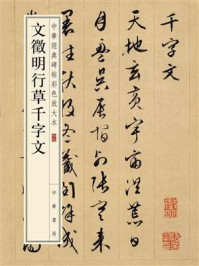 中華經典碑帖彩色放大本
文徵明行草千字文
中華書局
千字文
天地玄黃宇宙洪荒日
月盈昃辰宿列張寒來